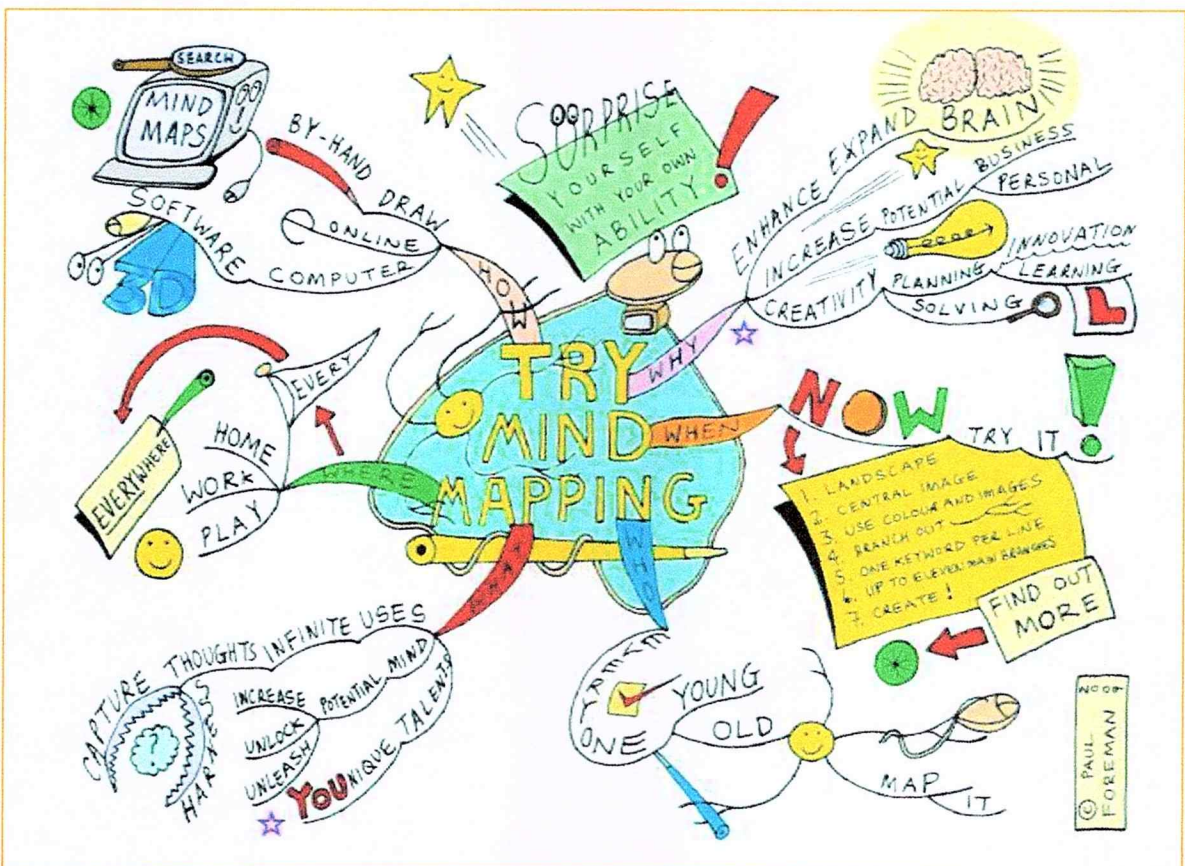 SEARCH
MIND
MAPS
BY-HAND DRAW
ONLINE
COMPUTER
SOFTWARE
3D
HOW
SURPRISE
YOURSELF
WITH YOUR OWN
ABILITY
!
WHY
ENHANCE EXPAND BRAIN
INCREASE POTENTIAL BUSINESS
PERSONAL
CREATIVITY PLANNING INNOVATION
LEARNING
SOLVING
L
TRY
MIND
MAPPING
WHEN
NOW
TRY IT !
1. LANDSCAPE
2. CENTRAL IMAGE
3. USE COLOUR AND IMAGES
4. BRANCH OUT
5. ONE KEYWORD PER LINE
6. UP TO ELEVEN MAIN BRANCHES
7. CREATE !
FIND OUT
MORE
WHERE
EVERY
EVERYWHERE
HOME
WORK
PLAY
WHAT
INFINITE USES
CAPTURE THOUGHTS
HARNESS
MIND
POTENTIAL
INCREASE
UNLOCK
UNLEASH
YOUNIQUE TALENTS
WHO
EVERY
ONE
YOUNG
OLD
MAP IT
© PAUL
FOREMAN